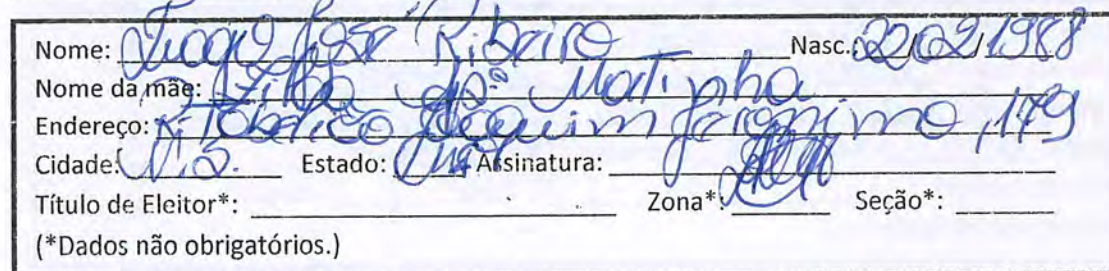 Nome: José Ribeiro Nasc.: 22/02/1988
Nome da mãe: Apª
Endereço: R. Joaquim Jeronimo, 149
Cidade: Estado: Assinatura:
Título de Eleitor*: Zona*: Seção*:
(*Dados não obrigatórios.)